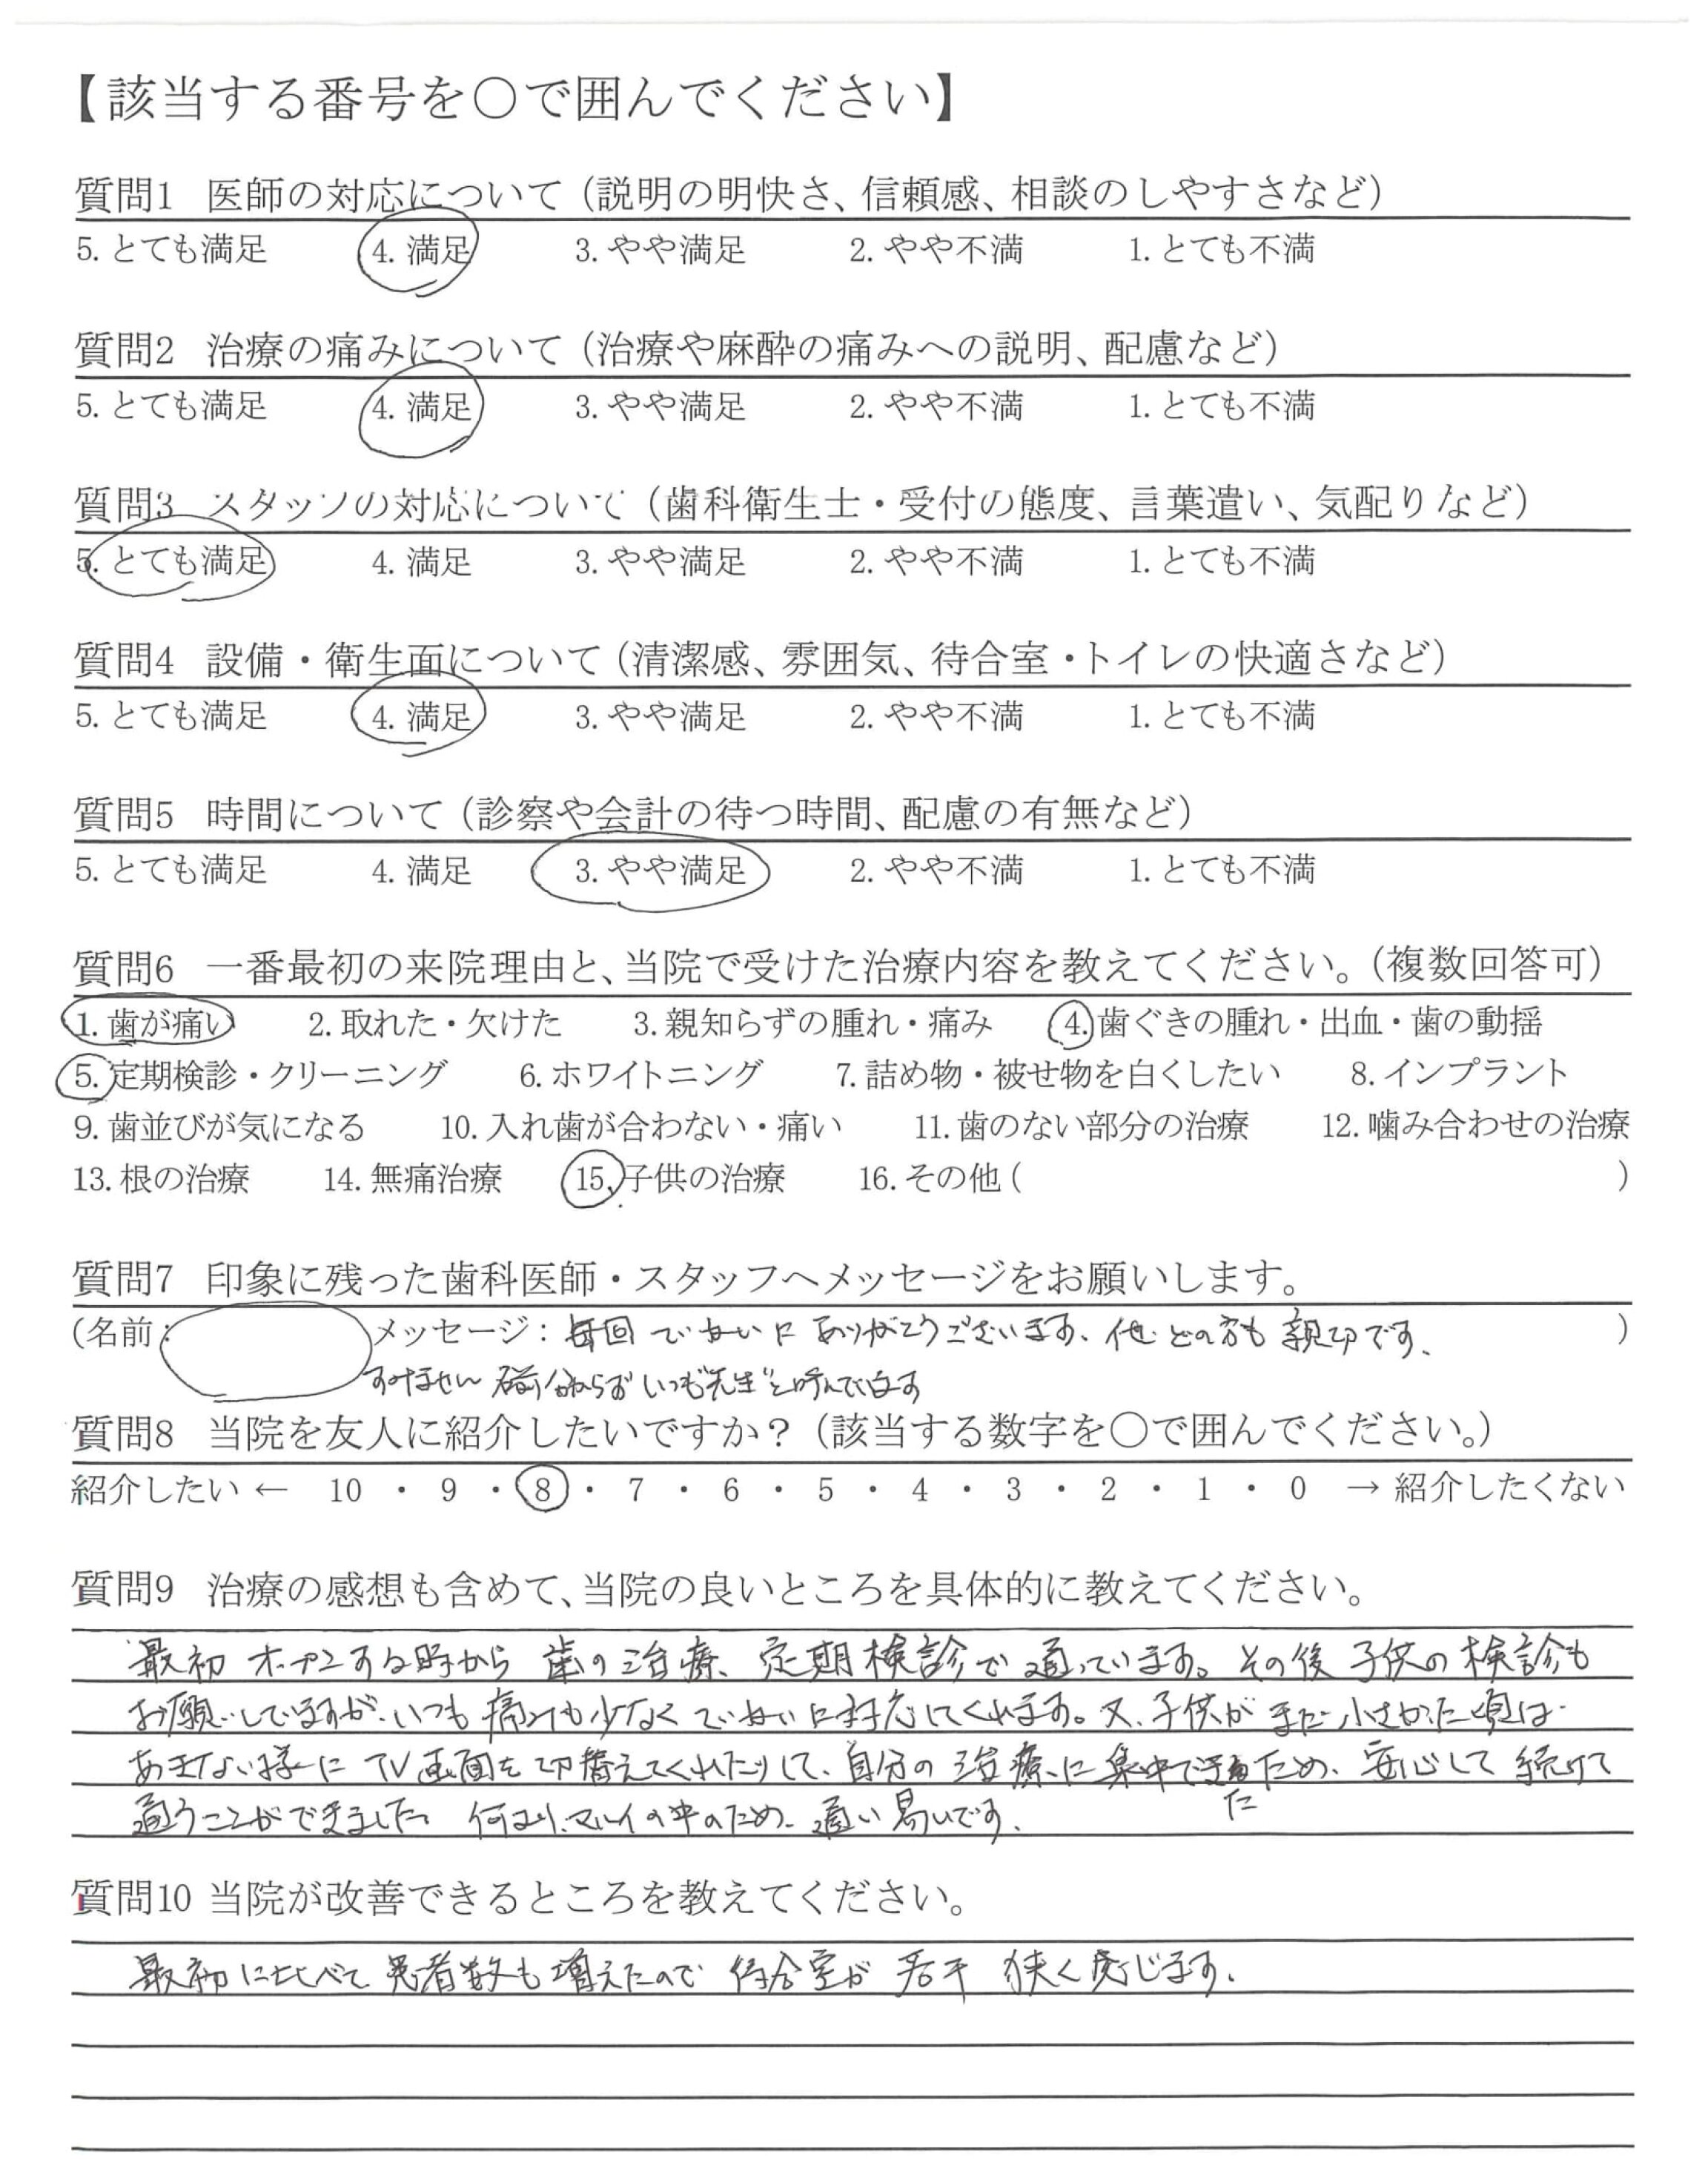 【該当する番号を〇で囲んでください】
質問1 医師の対応について（説明の明快さ、信頼感、相談のしやすさなど）
5. とても満足 4. 満足 3. やや満足 2. やや不満 1. とても不満
質問2 治療の痛みについて（治療や麻酔の痛みへの説明、配慮など）
5. とても満足 4. 満足 3. やや満足 2. やや不満 1. とても不満
質問3 スタッフの対応について（歯科衛生士・受付の態度、言葉遣い、気配りなど）
5. とても満足 4. 満足 3. やや満足 2. やや不満 1. とても不満
質問4 設備・衛生面について（清潔感、雰囲気、待合室・トイレの快適さなど）
5. とても満足 4. 満足 3. やや満足 2. やや不満 1. とても不満
質問5 時間について（診察や会計の待つ時間、配慮の有無など）
5. とても満足 4. 満足 3. やや満足 2. やや不満 1. とても不満
質問6 一番最初の来院理由と、当院で受けた治療内容を教えてください。（複数回答可）
1. 歯が痛い 2. 取れた・欠けた 3. 親知らずの腫れ・痛み 4. 歯ぐきの腫れ・出血・歯の動揺
5. 定期検診・クリーニング 6. ホワイトニング 7. 詰め物・被せ物を白くしたい 8. インプラント
9. 歯並びが気になる 10. 入れ歯が合わない・痛い 11. 歯のない部分の治療 12. 噛み合わせの治療
13. 根の治療 14. 無痛治療 15. 子供の治療 16. その他（ ）
質問7 印象に残った歯科医師・スタッフへメッセージをお願いします。
（名前： メッセージ： 毎回ていねいにありがとうございます、他どの方も親切です、 ）
すみません 名前分からず いつも"先生"と呼んでいます
質問8 当院を友人に紹介したいですか？（該当する数字を〇で囲んでください。）
紹介したい ← 10 ・ 9 ・ 8 ・ 7 ・ 6 ・ 5 ・ 4 ・ 3 ・ 2 ・ 1 ・ 0 → 紹介したくない
質問9 治療の感想も含めて、当院の良いところを具体的に教えてください。
最初オープンする時から 歯の治療、定期検診で通っています。その後子供の検診も
お願いしていますが、いつも痛みも少なくていねいに対応してくれます。又、子供がまだ小さかった頃は
あきない様に TV画面を切替えてくれたりして、自分の治療に集中できたため、安心して続けて
通うことができました。何より、マルイの中のため、通い易いです、
質問10 当院が改善できるところを教えてください。
最初にくらべて患者数も増えたので待合室が若干狭く感じます、